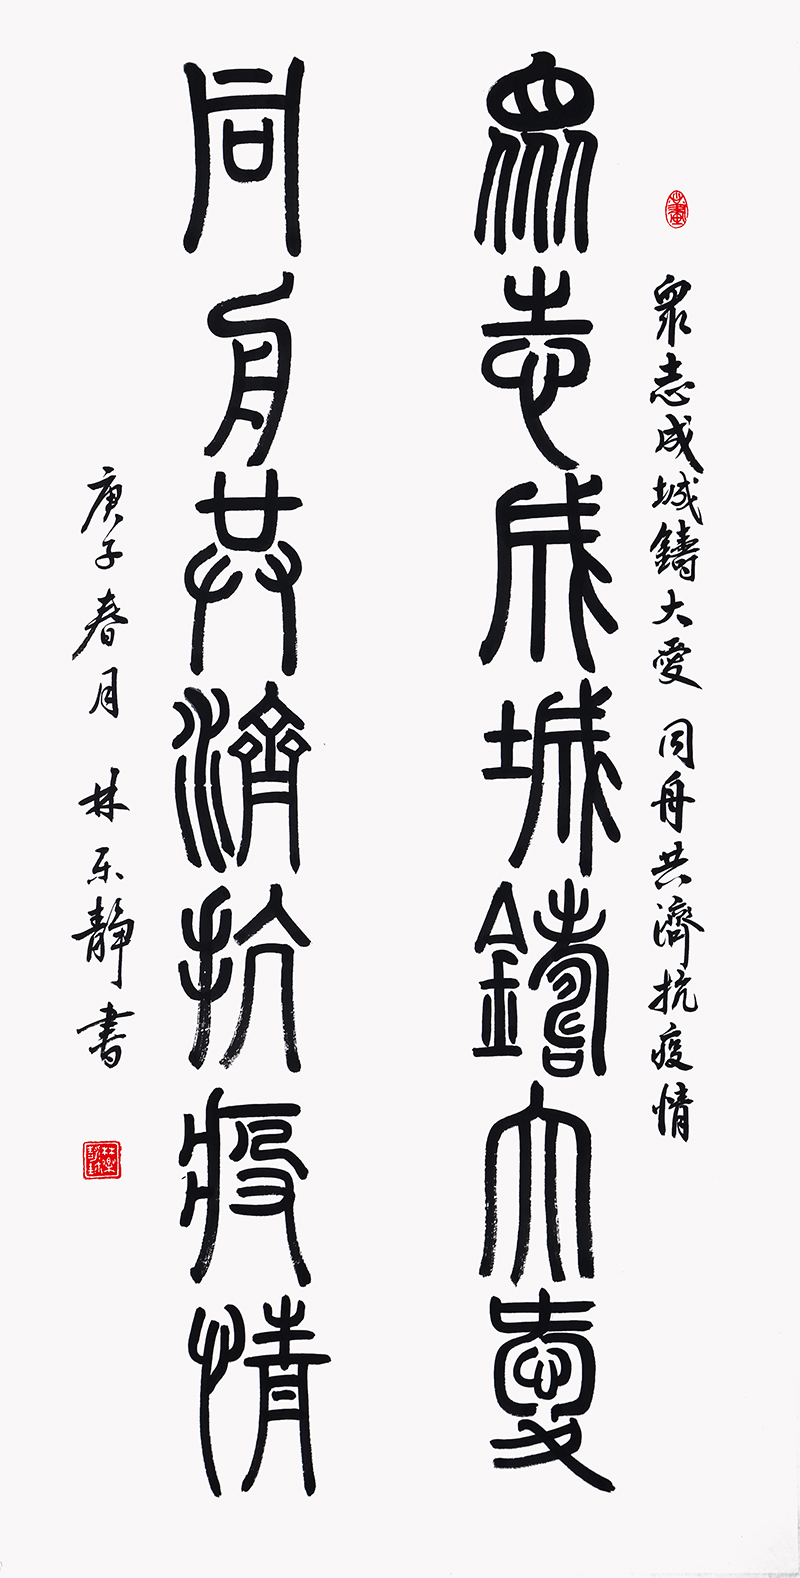 眾志成城鑄大愛 同舟共濟抗疫情
眾志成城鑄大愛
同舟共濟抗疫情
庚子春月 林乐靜書
林樂靜鉨